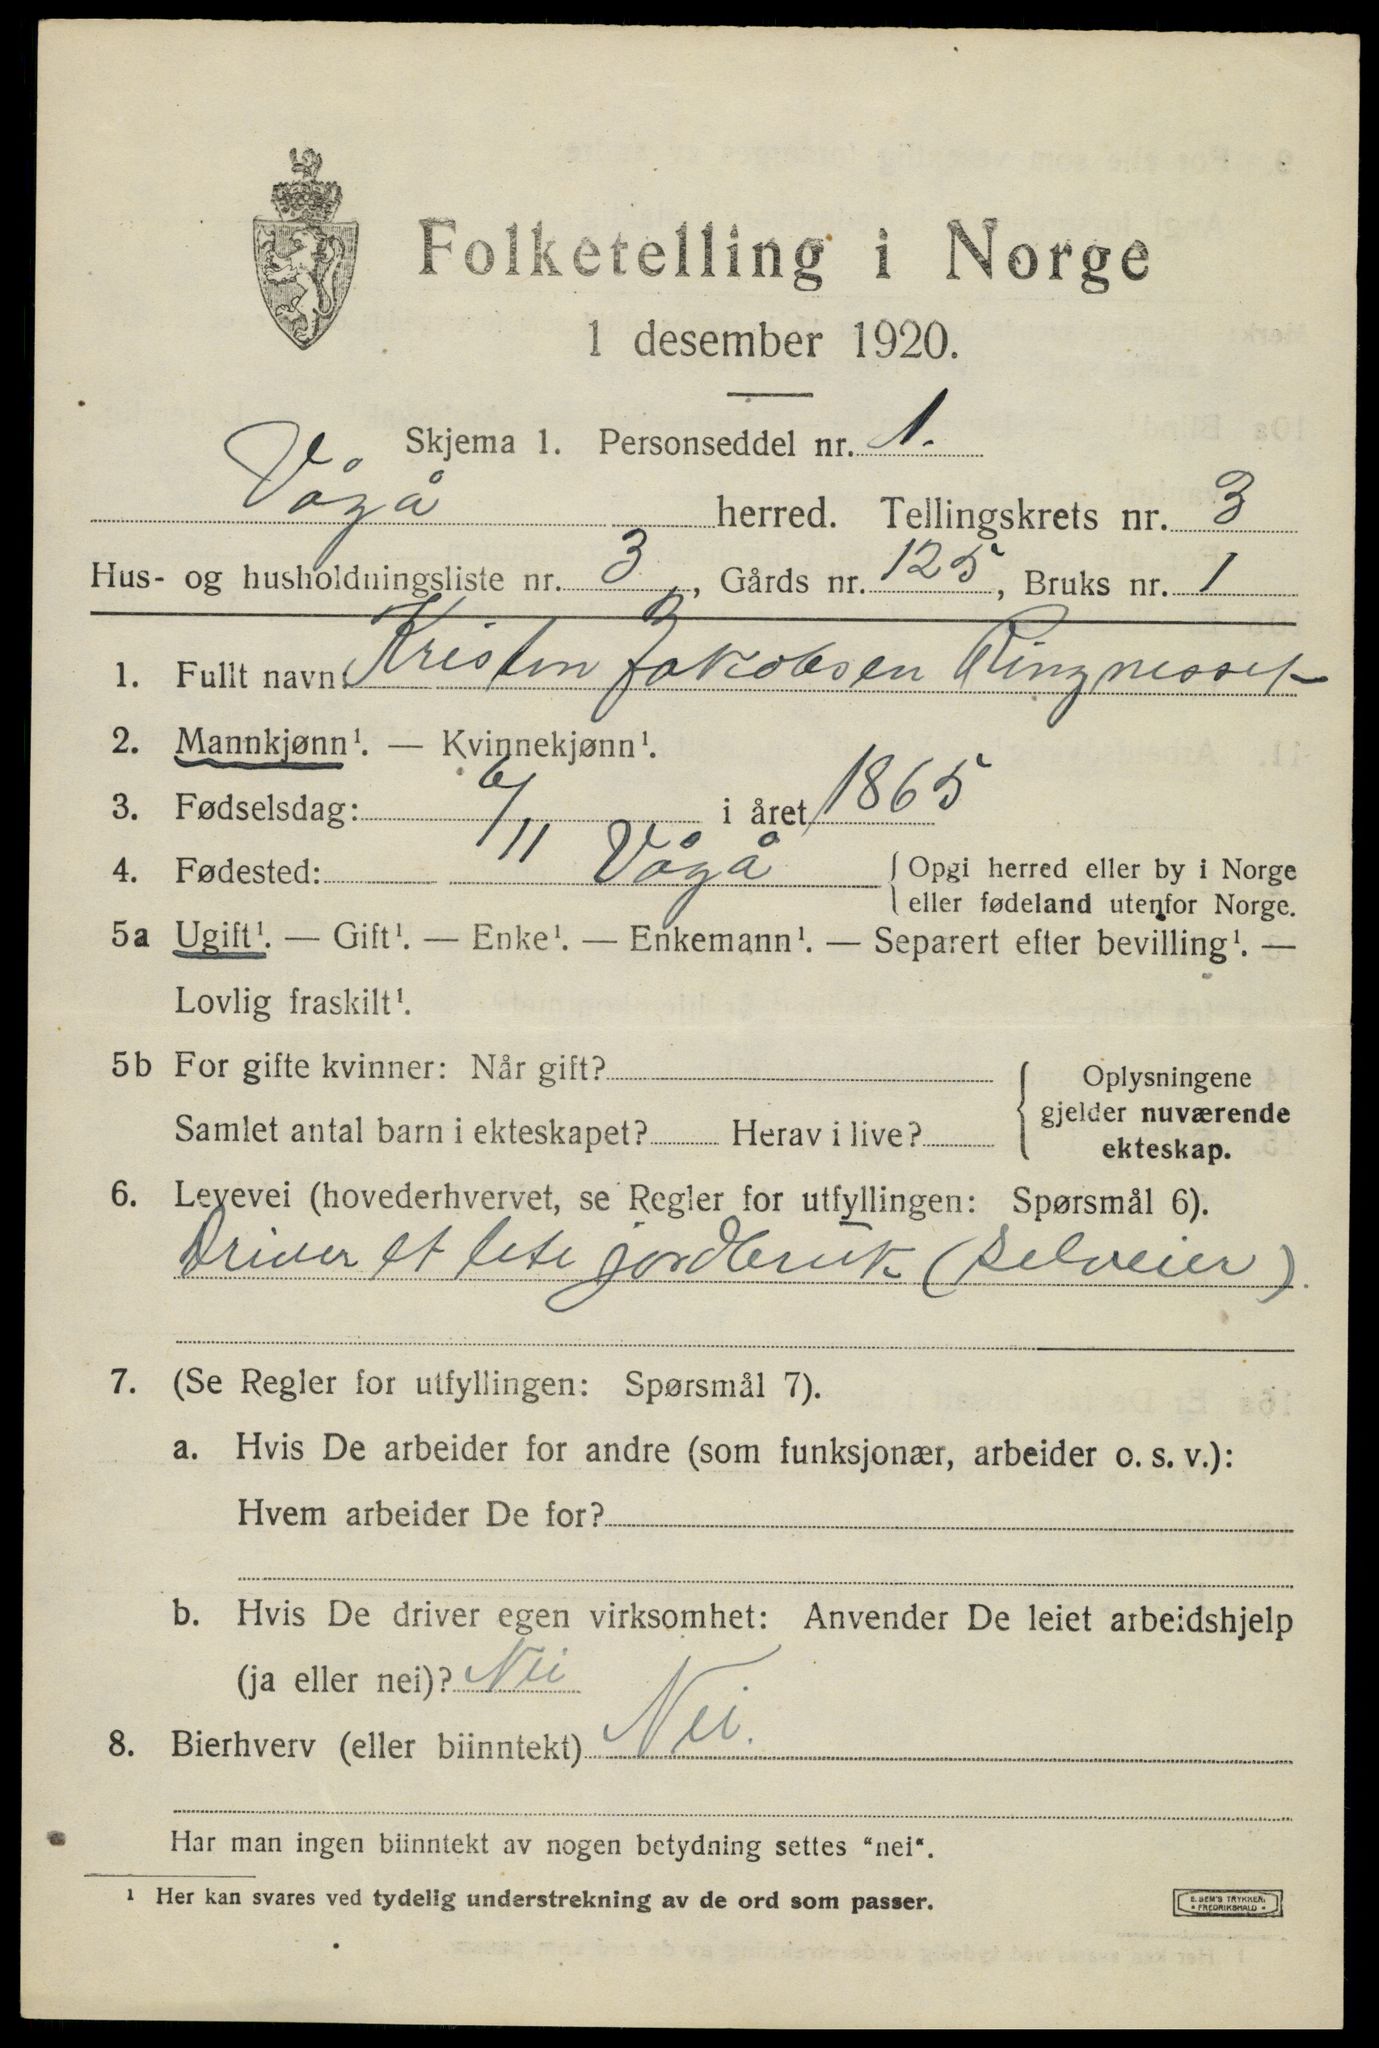 Folketelling i Norge
1 desember 1920.
Skjema 1. Personseddel nr. 1.
Vågå herred. Tellingskrets nr. 3
Hus- og husholdningsliste nr. 3, Gårds nr. 125, Bruks nr. 1
1. Fullt navn: Kristen Jakobsen Ringnesset
2. Mannkjønn¹. — Kvinnekjønn¹.
3. Fødselsdag: 6/11 i året 1865
4. Fødested: Vågå { Opgi herred eller by i Norge
eller fødeland utenfor Norge.
5a Ugift¹. — Gift¹. — Enke¹. — Enkemann¹. — Separert efter bevilling¹. —
Lovlig fraskilt¹.
5b For gifte kvinner: Når gift?
Samlet antal barn i ekteskapet? Herav i live?
{ Oplysningene
gjelder nuværende
ekteskap.
6. Levevei (hovederhvervet, se Regler for utfyllingen: Spørsmål 6).
Driver et lite jordbruk (selveier).
7. (Se Regler for utfyllingen: Spørsmål 7).
a. Hvis De arbeider for andre (som funksjonær, arbeider o. s. v.):
Hvem arbeider De for?
b. Hvis De driver egen virksomhet: Anvender De leiet arbeidshjelp
(ja eller nei)? Nei
8. Bierhverv (eller biinntekt) Nei.
Har man ingen biinntekt av nogen betydning settes "nei".
¹ Her kan svares ved tydelig understrekning av de ord som passer.
E. SEM'S TRYKKERI
* FREDRIKSHALD *